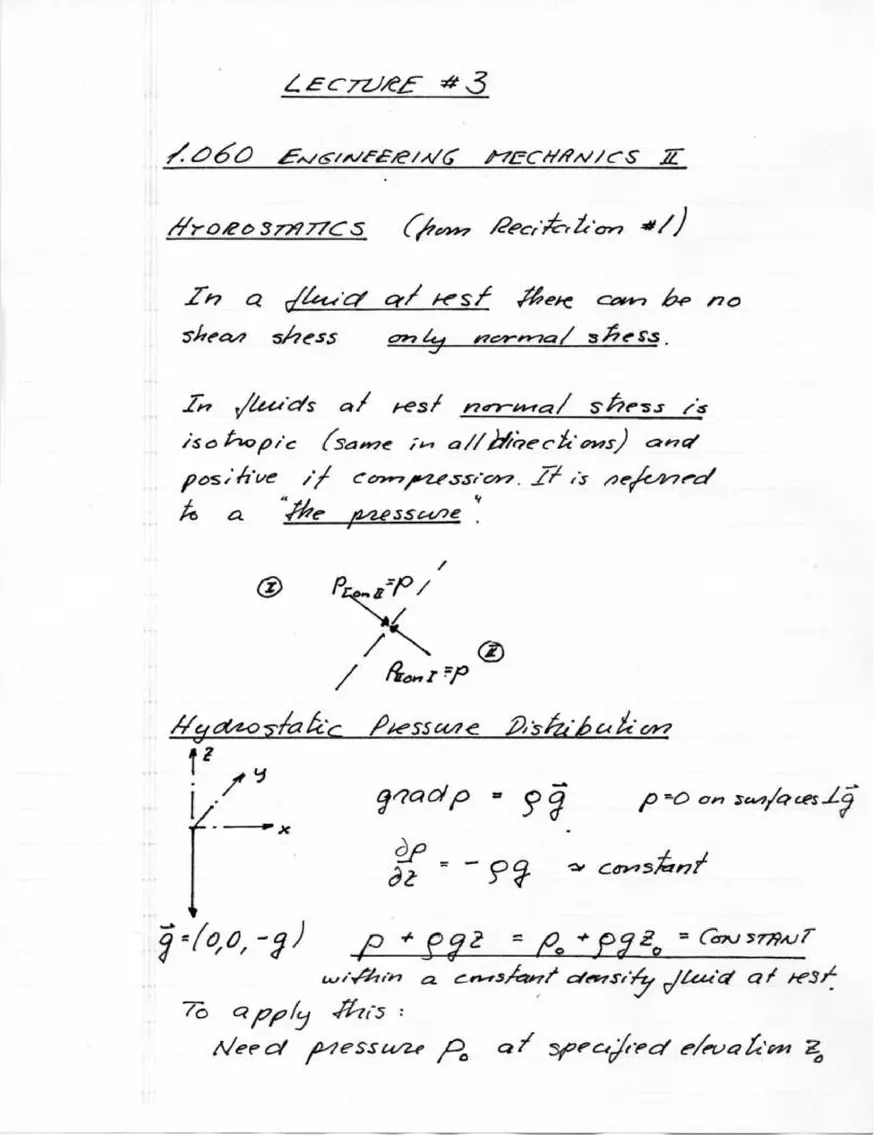 LECTURE #3
1.060 ENGINEERING MECHANICS II
HYDROSTATICS (from Recitation #1)
In a fluid at rest there can be no
shear stress only normal stress.
In fluids at rest normal stress is
isotropic (same in all directions) and
positive if compression. It is referred
to a "the pressure".
I P_{I on II} = p
II
P_{II on I} = p
Hydrostatic Pressure Distribution
z
y
x
grad p = ρg⃗ p=0 on surfaces ⊥g⃗
∂p/∂z = -ρg ≈ constant
g⃗ = (0,0,-g) p + ρgz = p₀ + ρgz₀ = CONSTANT
within a constant density fluid at rest.
To apply this :
Need pressure p₀ at specified elevation z₀